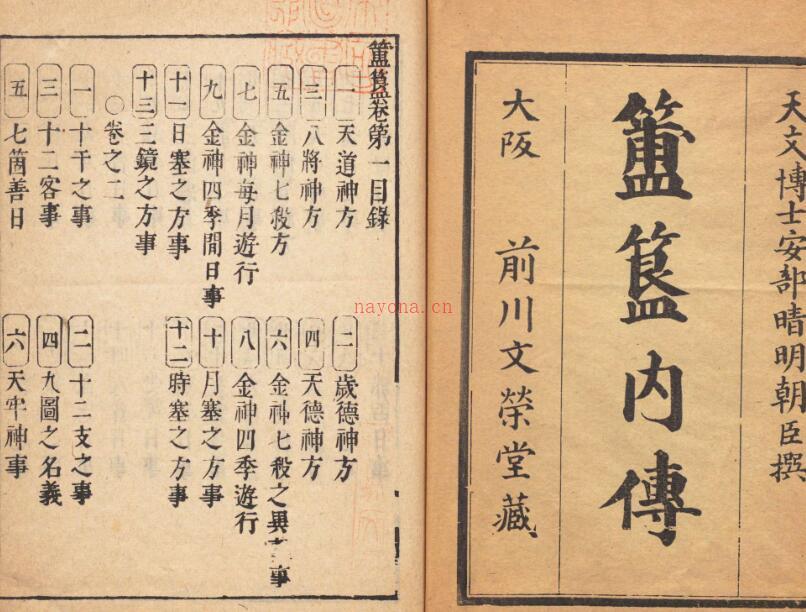 天文博士安部晴明朝臣撰
簠簋内傳
大阪 前川文榮堂藏
簠簋卷第一目錄
一 天道神方 二 歲德神方
三 八將神方 四 天德神方
五 金神七殺方 六 金神七殺之異 事
七 金神每月遊行 八 金神四季遊行
九 金神四季間日事 十 月塞之方事
十一 日塞之方事 十二 時塞之方事
十三 三鏡之方事
○卷之二
一 十干之事 二 十二支之事
三 十二客事 四 九圖之名義
五 七箇善日 六 天牢神事
nayona.cn